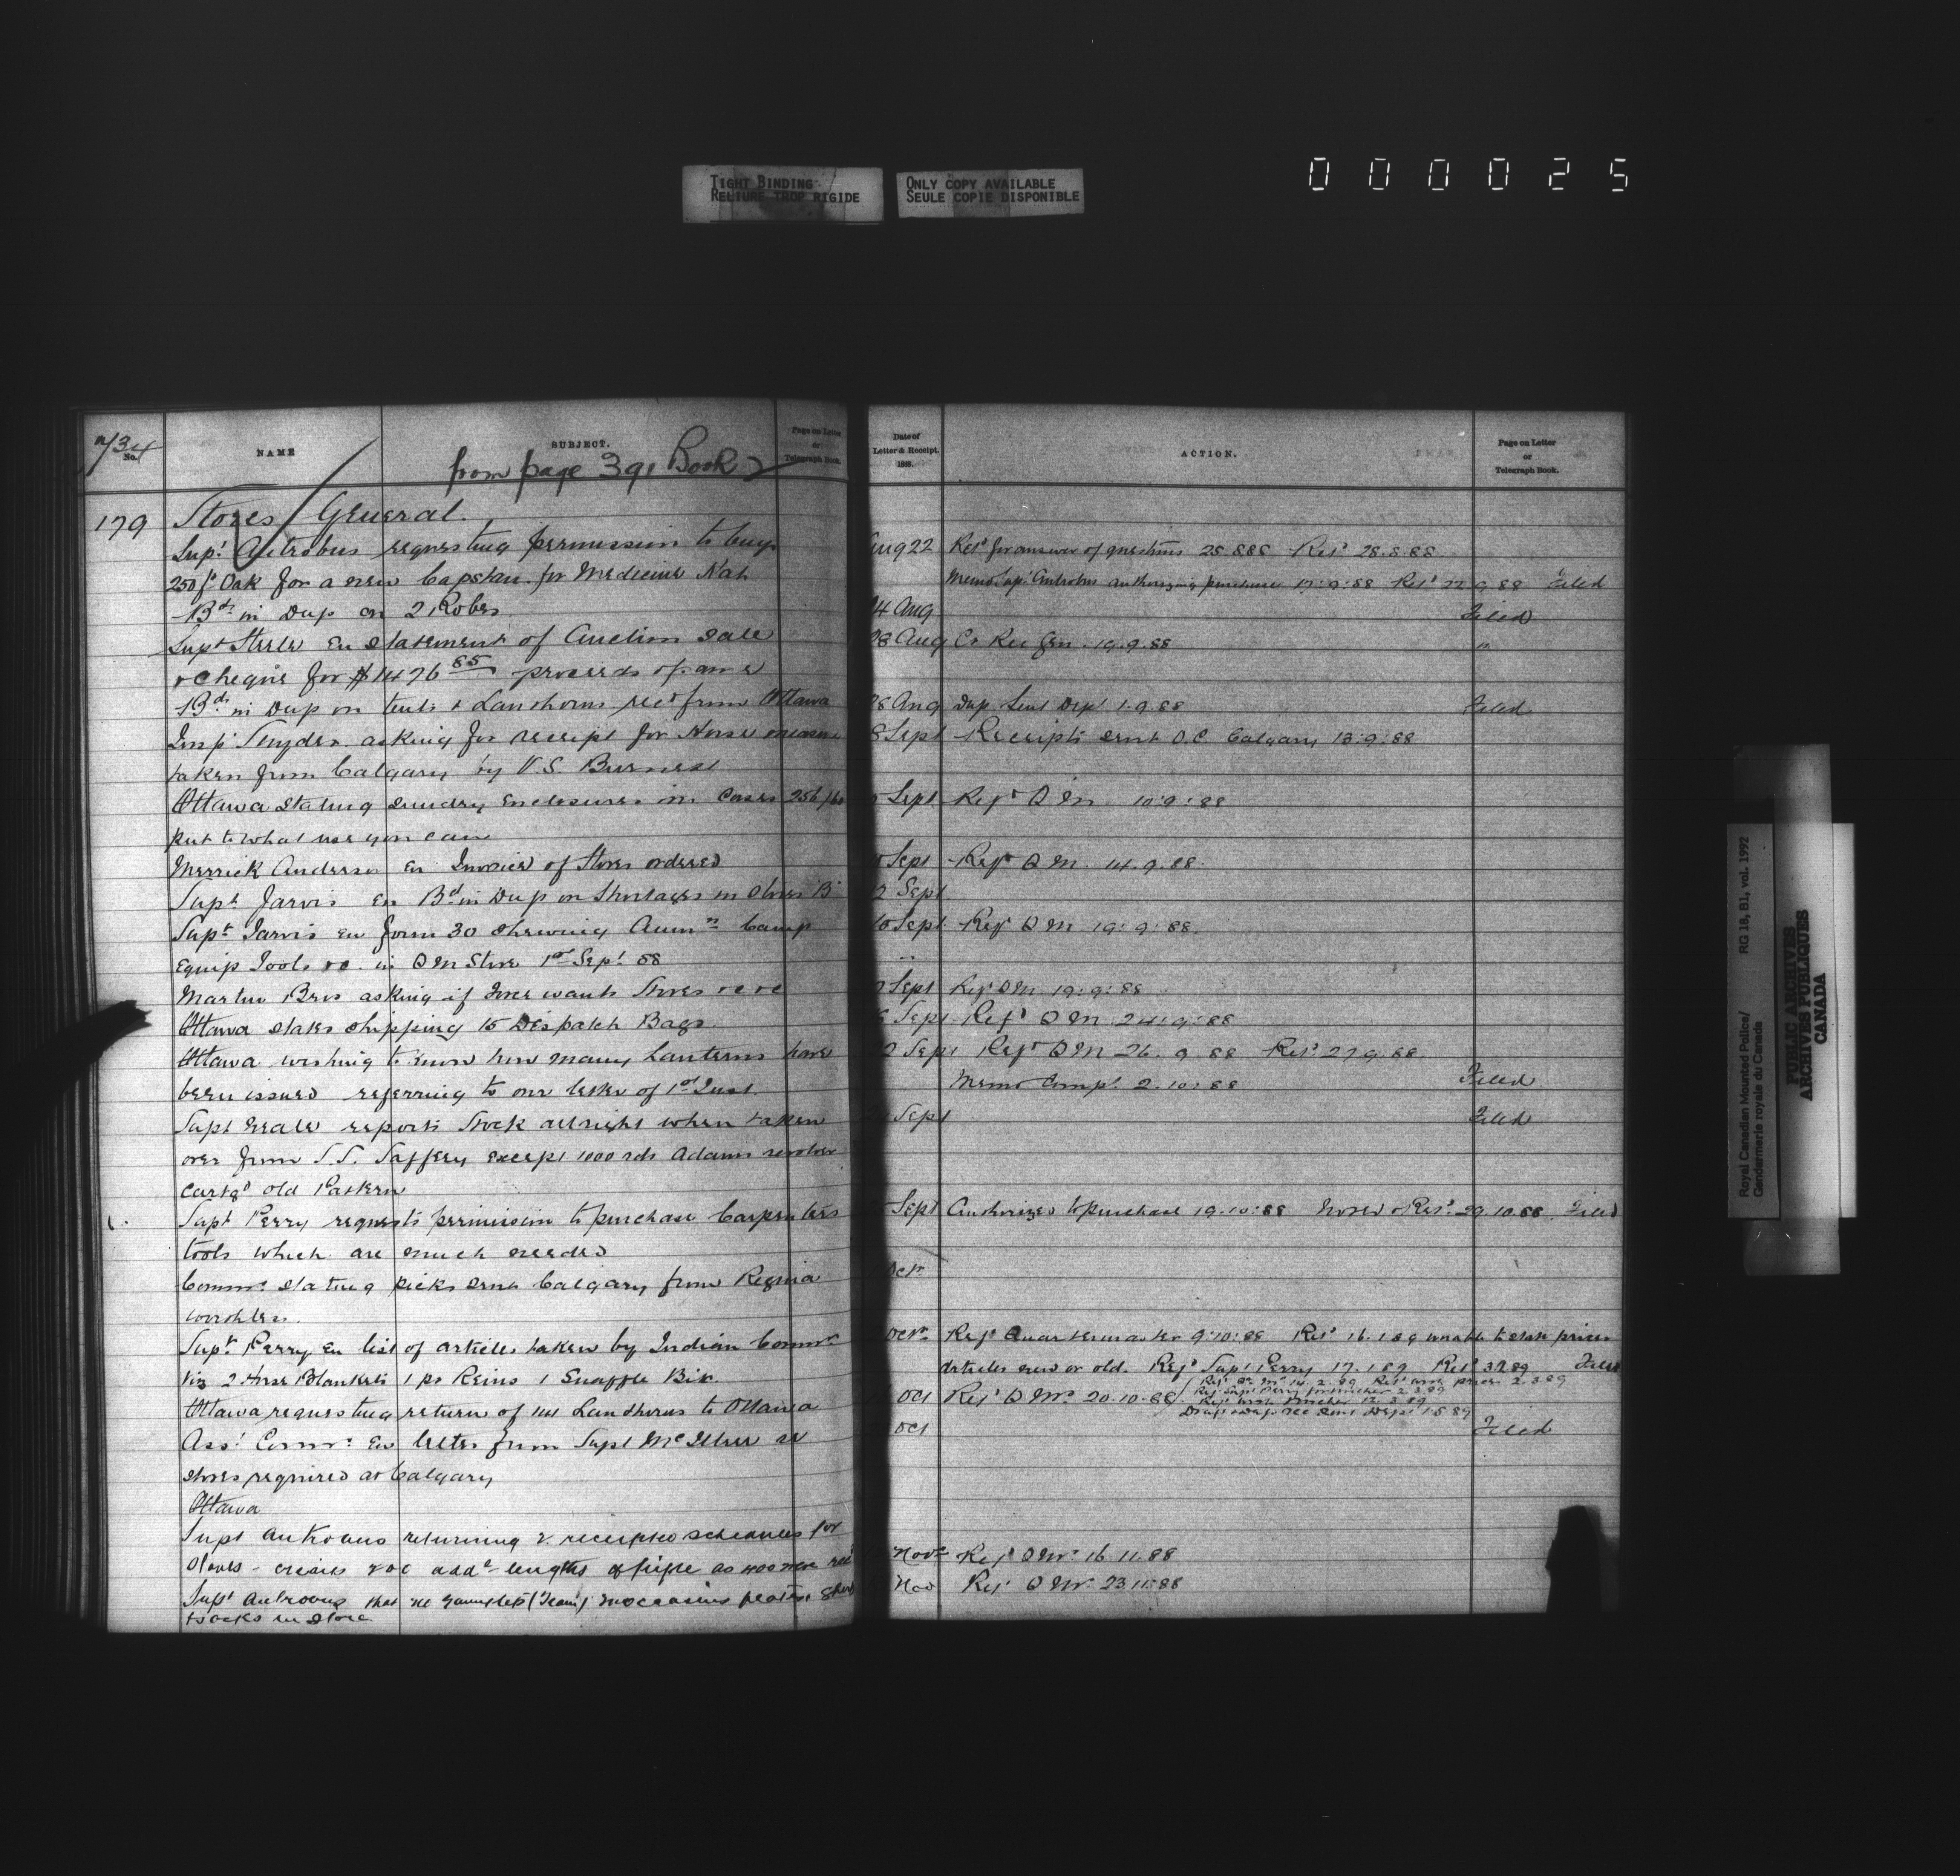 TIGHT BINDING
RELIURE TROP RIGIDE
ONLY COPY AVAILABLE
SEULE COPIE DISPONIBLE
000025
No.
NAME
SUBJECT.
Page on Letter
or
Telegraph Book.
from page 391 Book 2
179 Stores General
Supt Antrobus requesting permission to buy
250 ft Oak for a new Capstan for Medicine Hat
Bds in Dup on 2 Robes
Supt Steele En Statement of Auction Sale
& Cheque for $1476 85 proceeds of same
Bds in Dup on tents & Lanthorns recd from Ottawa
Insp Snyder asking for receipt for Horse measure
taken from Calgary by V.S. Burnett
Ottawa stating sundry enclosures in Cases 256/60
put to what use you can
Merrick Anderson En Invoice of Stores ordered
Supt Jarvis En Bd in Dup on Shortages in Stores "B"
Supt Jarvis en form 30 shewing Ammn Camp
Equip Tools &c. in Q M Store 1st Sept 88
Martin Bros asking if Force wants Stores &c &c
Ottawa states shipping 15 Despatch Bags
Ottawa wishing to know how many Lanterns have
been issued referring to our letter of 1st Inst
Supt Neale reports Stock allright when taken
over from Jaffery except 1000 rds Adams revolver
Cartgs old Pattern
Supt Perry requests permission to purchase Carpenters
tools which are much needed
Commr stating picks sent Calgary from Regina
worthless
Supt Perry En list of articles taken by Indian Commr
Viz 2 Horse Blankets 1 pr Reins 1 Snaffle Bit
Ottawa requesting return of Lanthorns to Ottawa
Asst Commr En letter from Supt McIllree re
stores required at Calgary
Ottawa
Supt Antrobus returning 2 receipted schedules for
Stoves - addl lengths of pipe as were recd
Supt Antrobus that no gauntlets (Team) moccasins
& socks in store
Date of
Letter & Receipt.
1888.
ACTION.
Page on Letter
or
Telegraph Book.
Aug 22 Retd for answer of questions 25 8 88 Retd 28.8.88
Memo Supt Antrobus authorizing purchase 17:9:88 Retd 22 9 88 Filed
Aug Filed
28 Aug Cr Rec Gen. 19.9.88 "
28 Aug Dup Sent Dept 1.9.88 Filed
8 Sept Receipts sent O.C. Calgary 13:9:88
Sept Refd Q M 10:9:88
Sept Refd Q M 14.9.88
Sept
Sept Refd Q M 19:9:88
"
Sept Refd Q M 19:9:88
Sept Refd Q M 24:9:88
Sept Refd Q M 26.9.88 Retd 27 9.88
Memo Compt 2.10:88 Filed
Sept Filed
Sept Authorized to purchase 19.10:88 Noted & Retd 29.10.88 Filed
Oct
Oct Refd Quartermaster 9:10:88 Retd 16.1.89 unable to state prices
articles new or old. Refd Supt Perry 17.1.89 Retd Filed
Refd Q M 14.2.89 Retd with prices 2.3.89
Oct Refd Q M 20.10.88
Refd Supt Perry for voucher 2.3.89
Retd with voucher 12.3.89
Oct Filed
Novr Refd Q M 16.11.88
Nov Refd Q M 23.11.88
Royal Canadian Mounted Police/
Gendarmerie royale du Canada
RG 18, B1, vol. 1992
PUBLIC ARCHIVES
ARCHIVES PUBLIQUES
CANADA